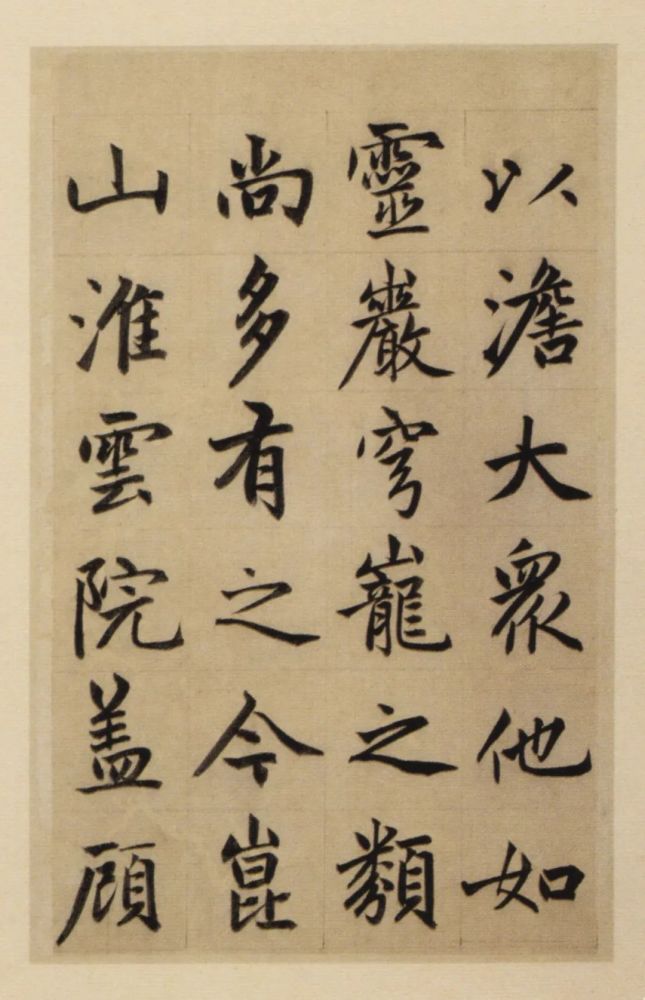 以澹大眾他如
靈巖穹巃之類
尚多有之今崑
山淮雲院蓋顧